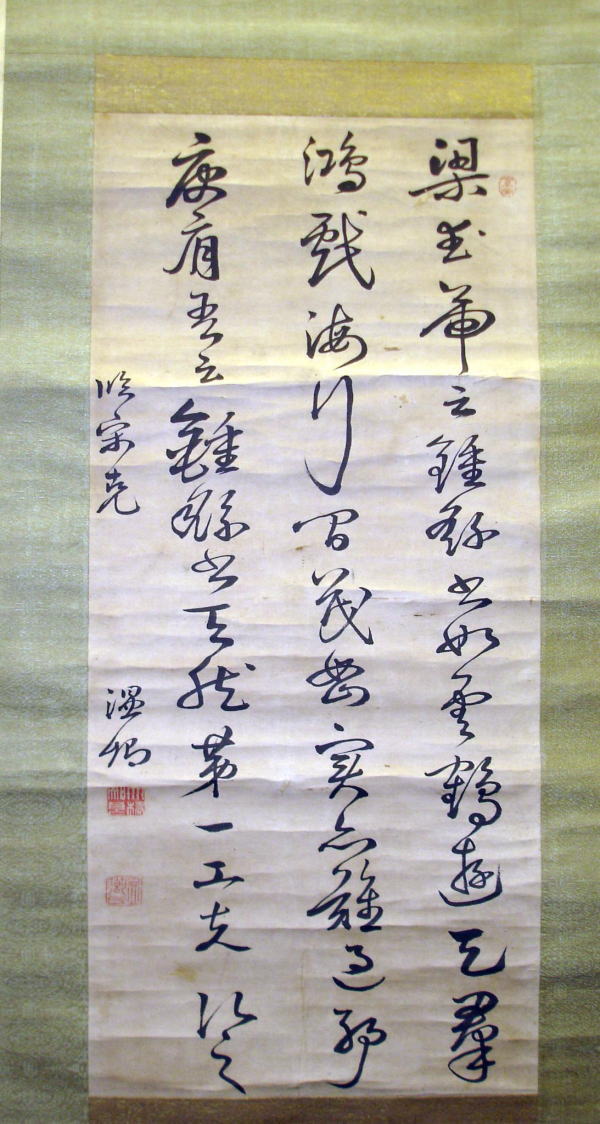 梁武帝云鍾繇書如雲鶴遊天羣
鴻戲海行間茂密實亦難過耶
庾肩吾云鍾繇書天然第一工夫次之
臨宋克